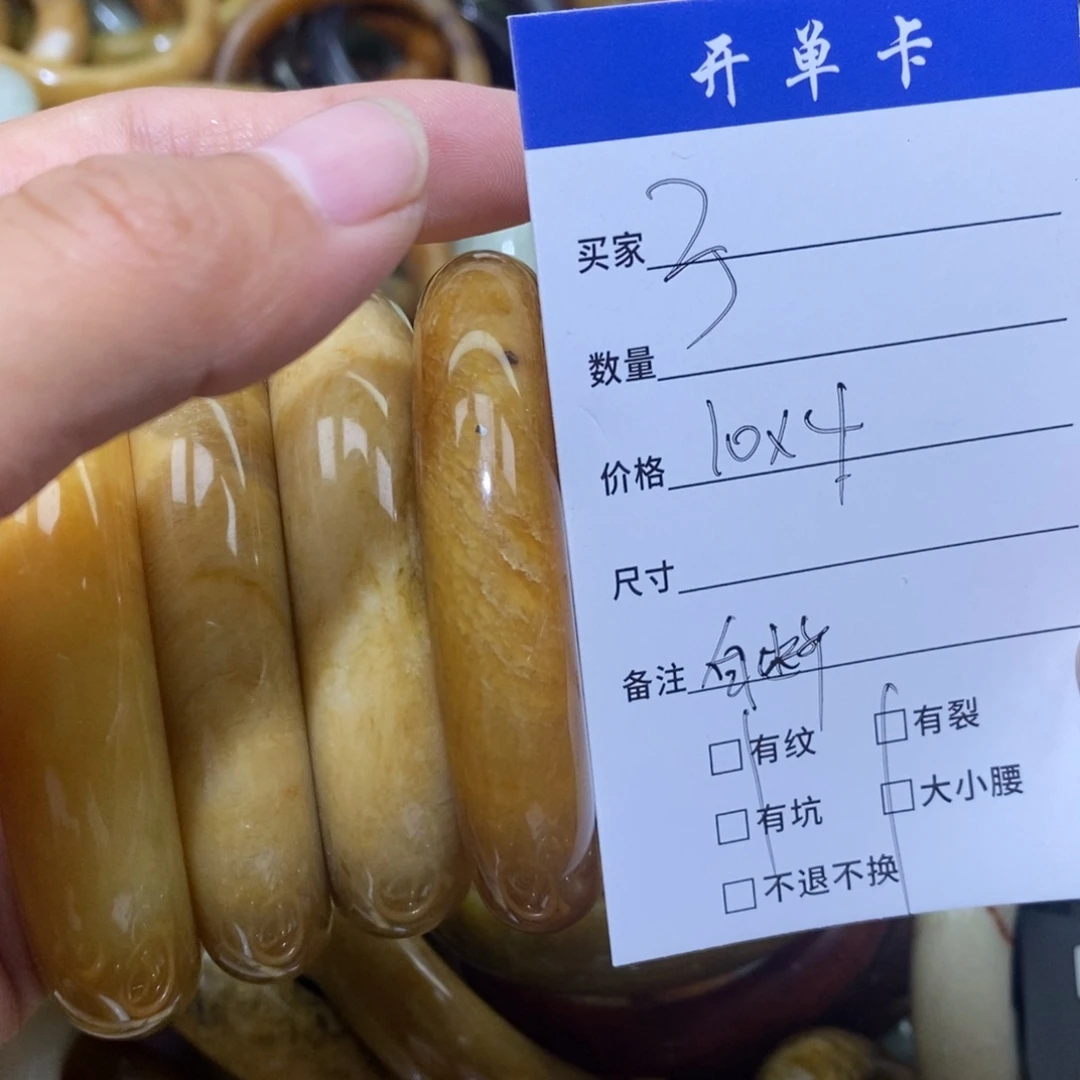 开单卡
买家
数量
价格 10x4
尺寸
备注
有纹 有裂
有坑 大小腰
不退不换